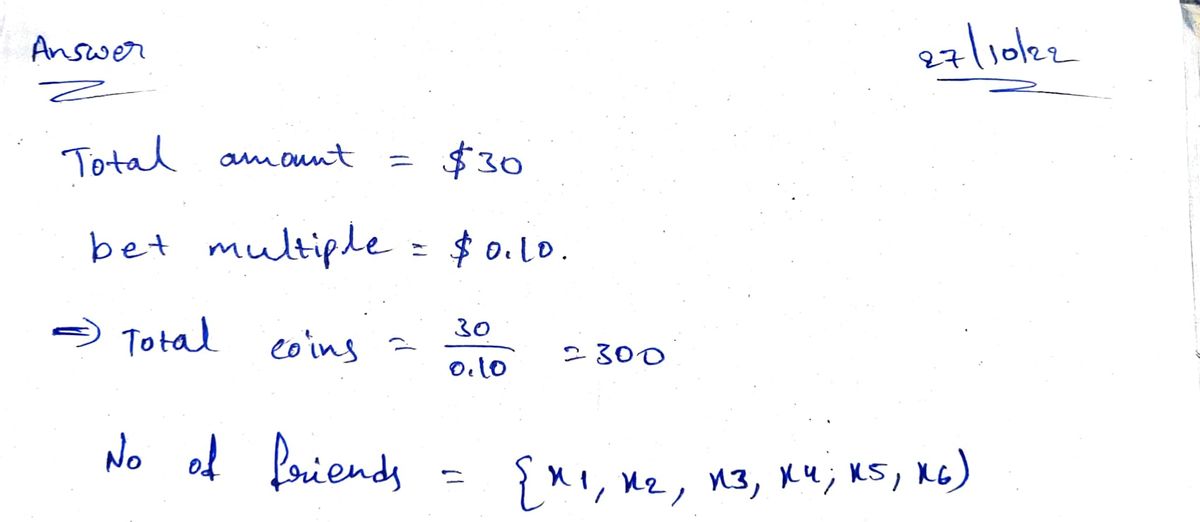 Answer 27/10/22
Total amount = $30
bet multiple = $0.10.
⇒ Total coins = 30/0.10 = 300
No of friends = {x1, x2, x3, x4; x5, x6)